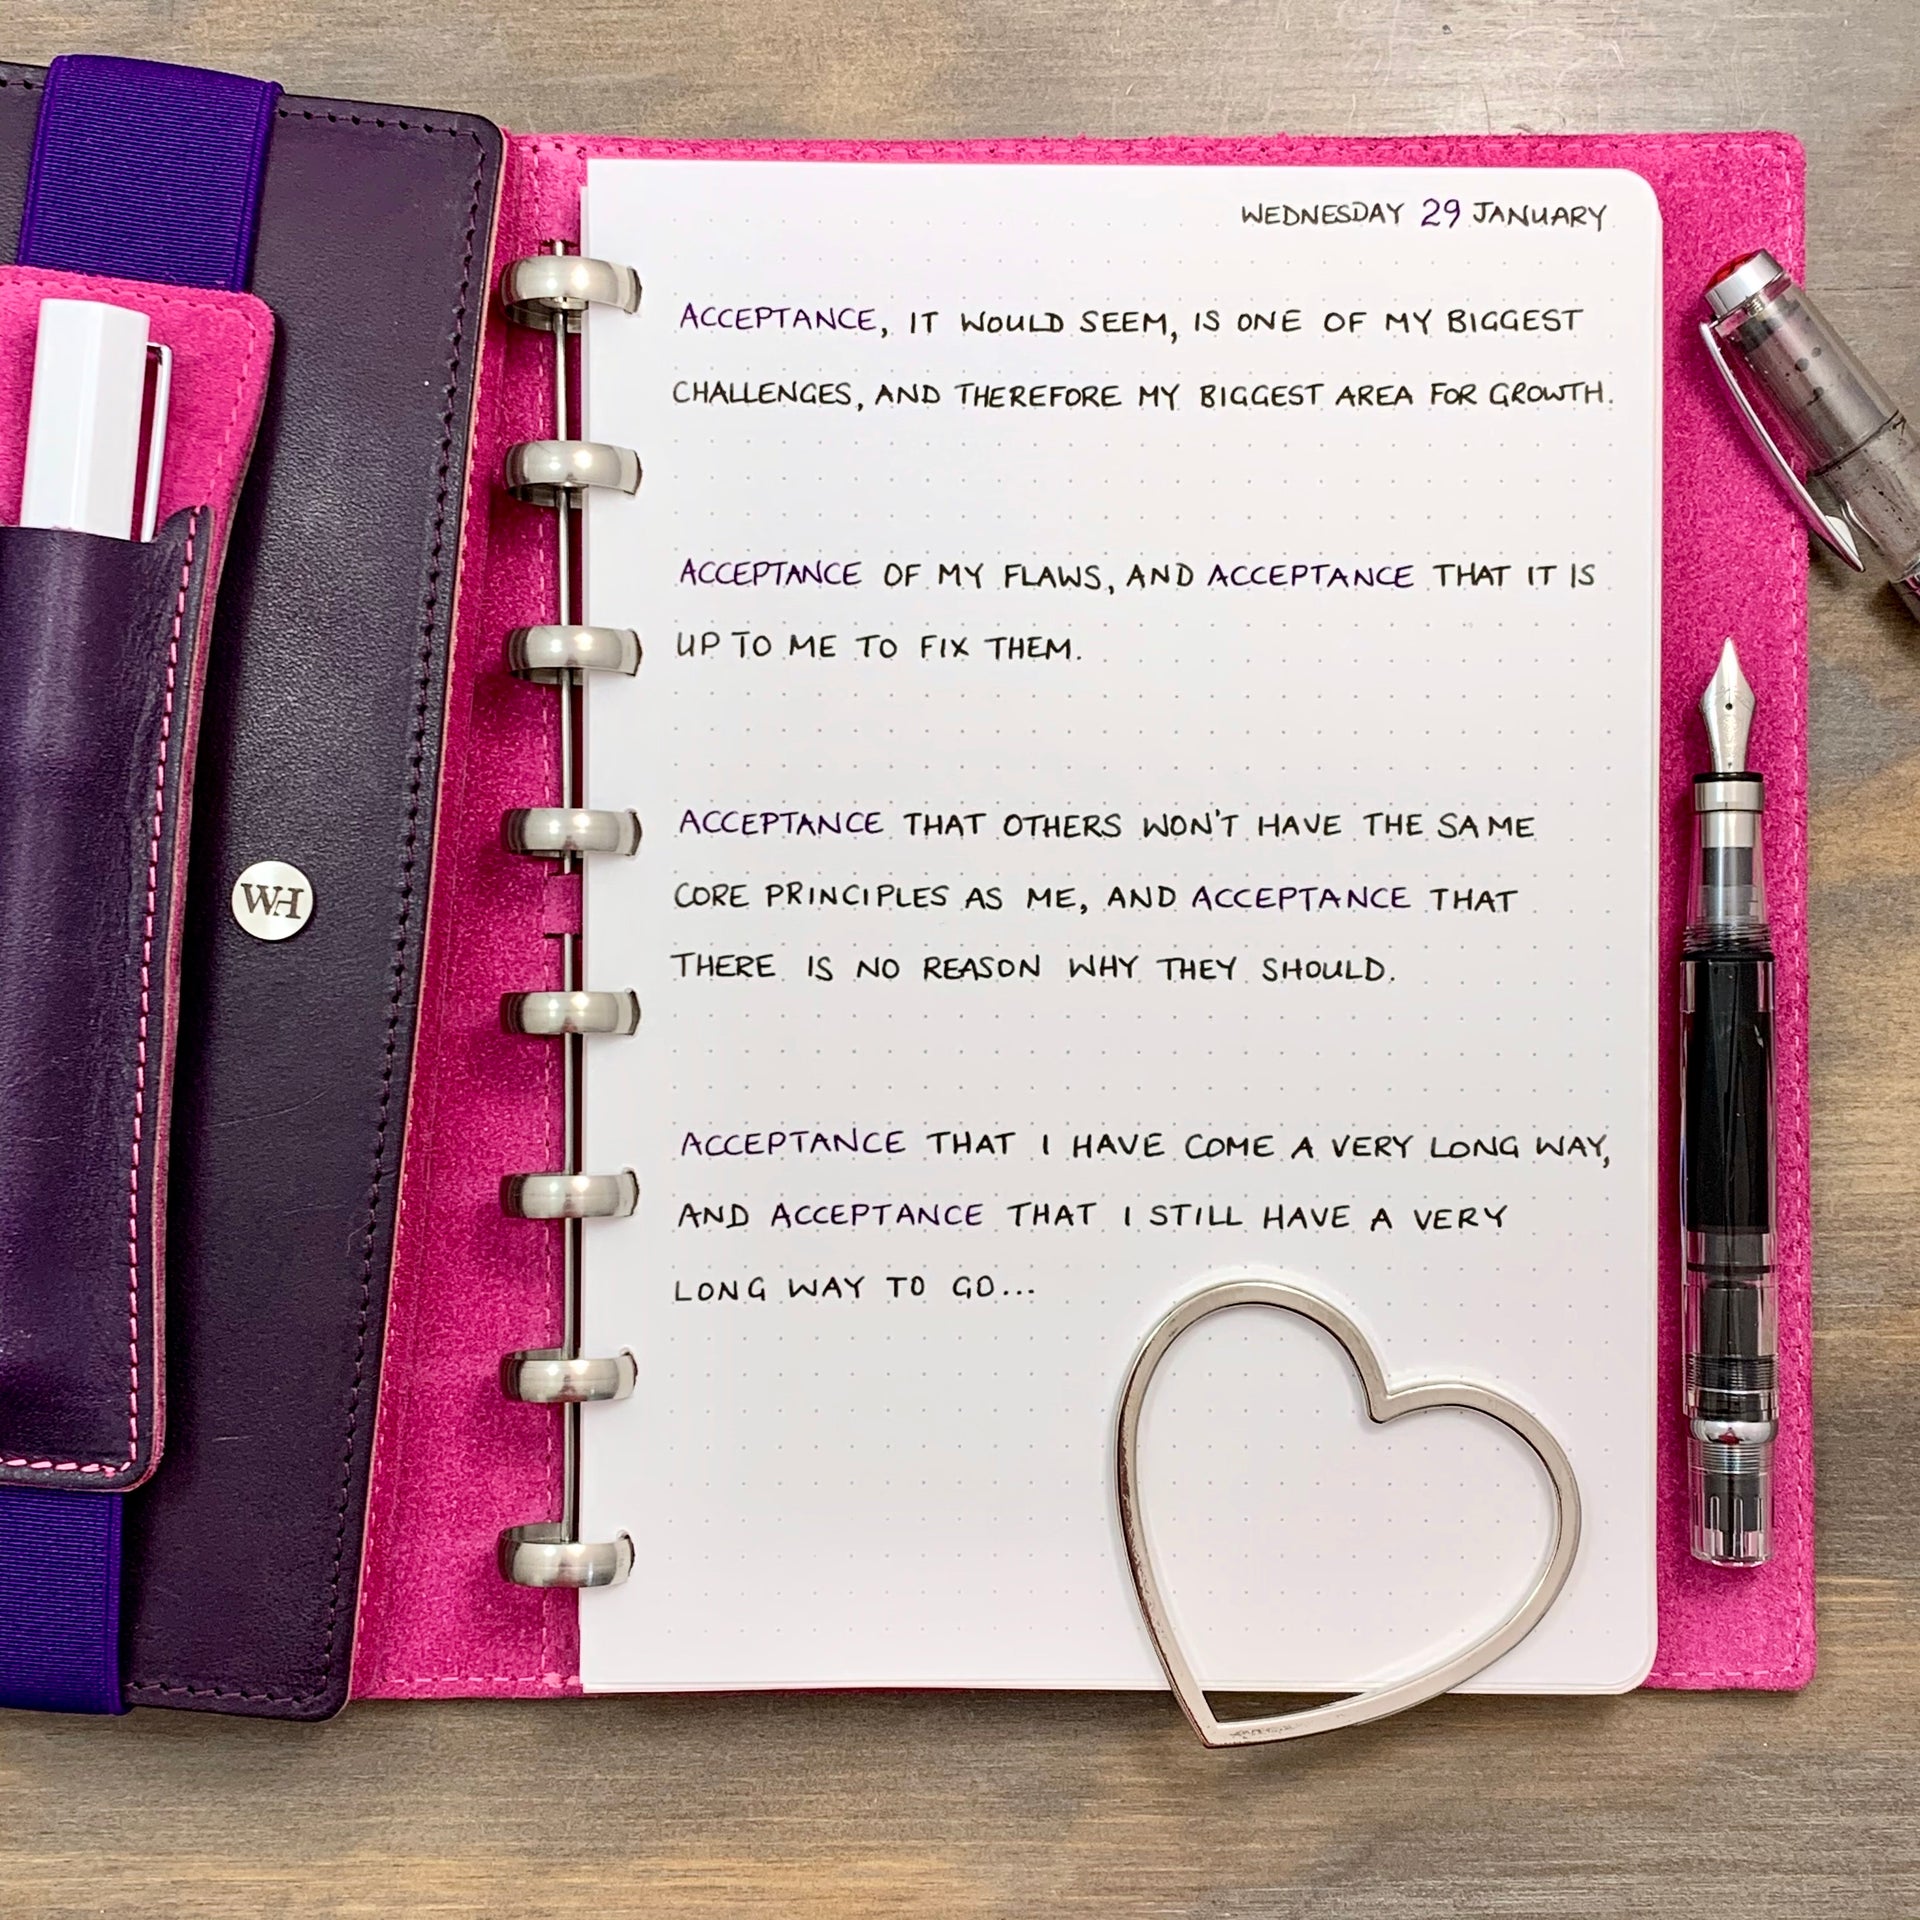 WEDNESDAY 29 JANUARY
ACCEPTANCE, IT WOULD SEEM, IS ONE OF MY BIGGEST
CHALLENGES, AND THEREFORE MY BIGGEST AREA FOR GROWTH.
ACCEPTANCE OF MY FLAWS, AND ACCEPTANCE THAT IT IS
UP TO ME TO FIX THEM.
ACCEPTANCE THAT OTHERS WON'T HAVE THE SAME
CORE PRINCIPLES AS ME, AND ACCEPTANCE THAT
THERE IS NO REASON WHY THEY SHOULD.
ACCEPTANCE THAT I HAVE COME A VERY LONG WAY,
AND ACCEPTANCE THAT I STILL HAVE A VERY
LONG WAY TO GO...
WH